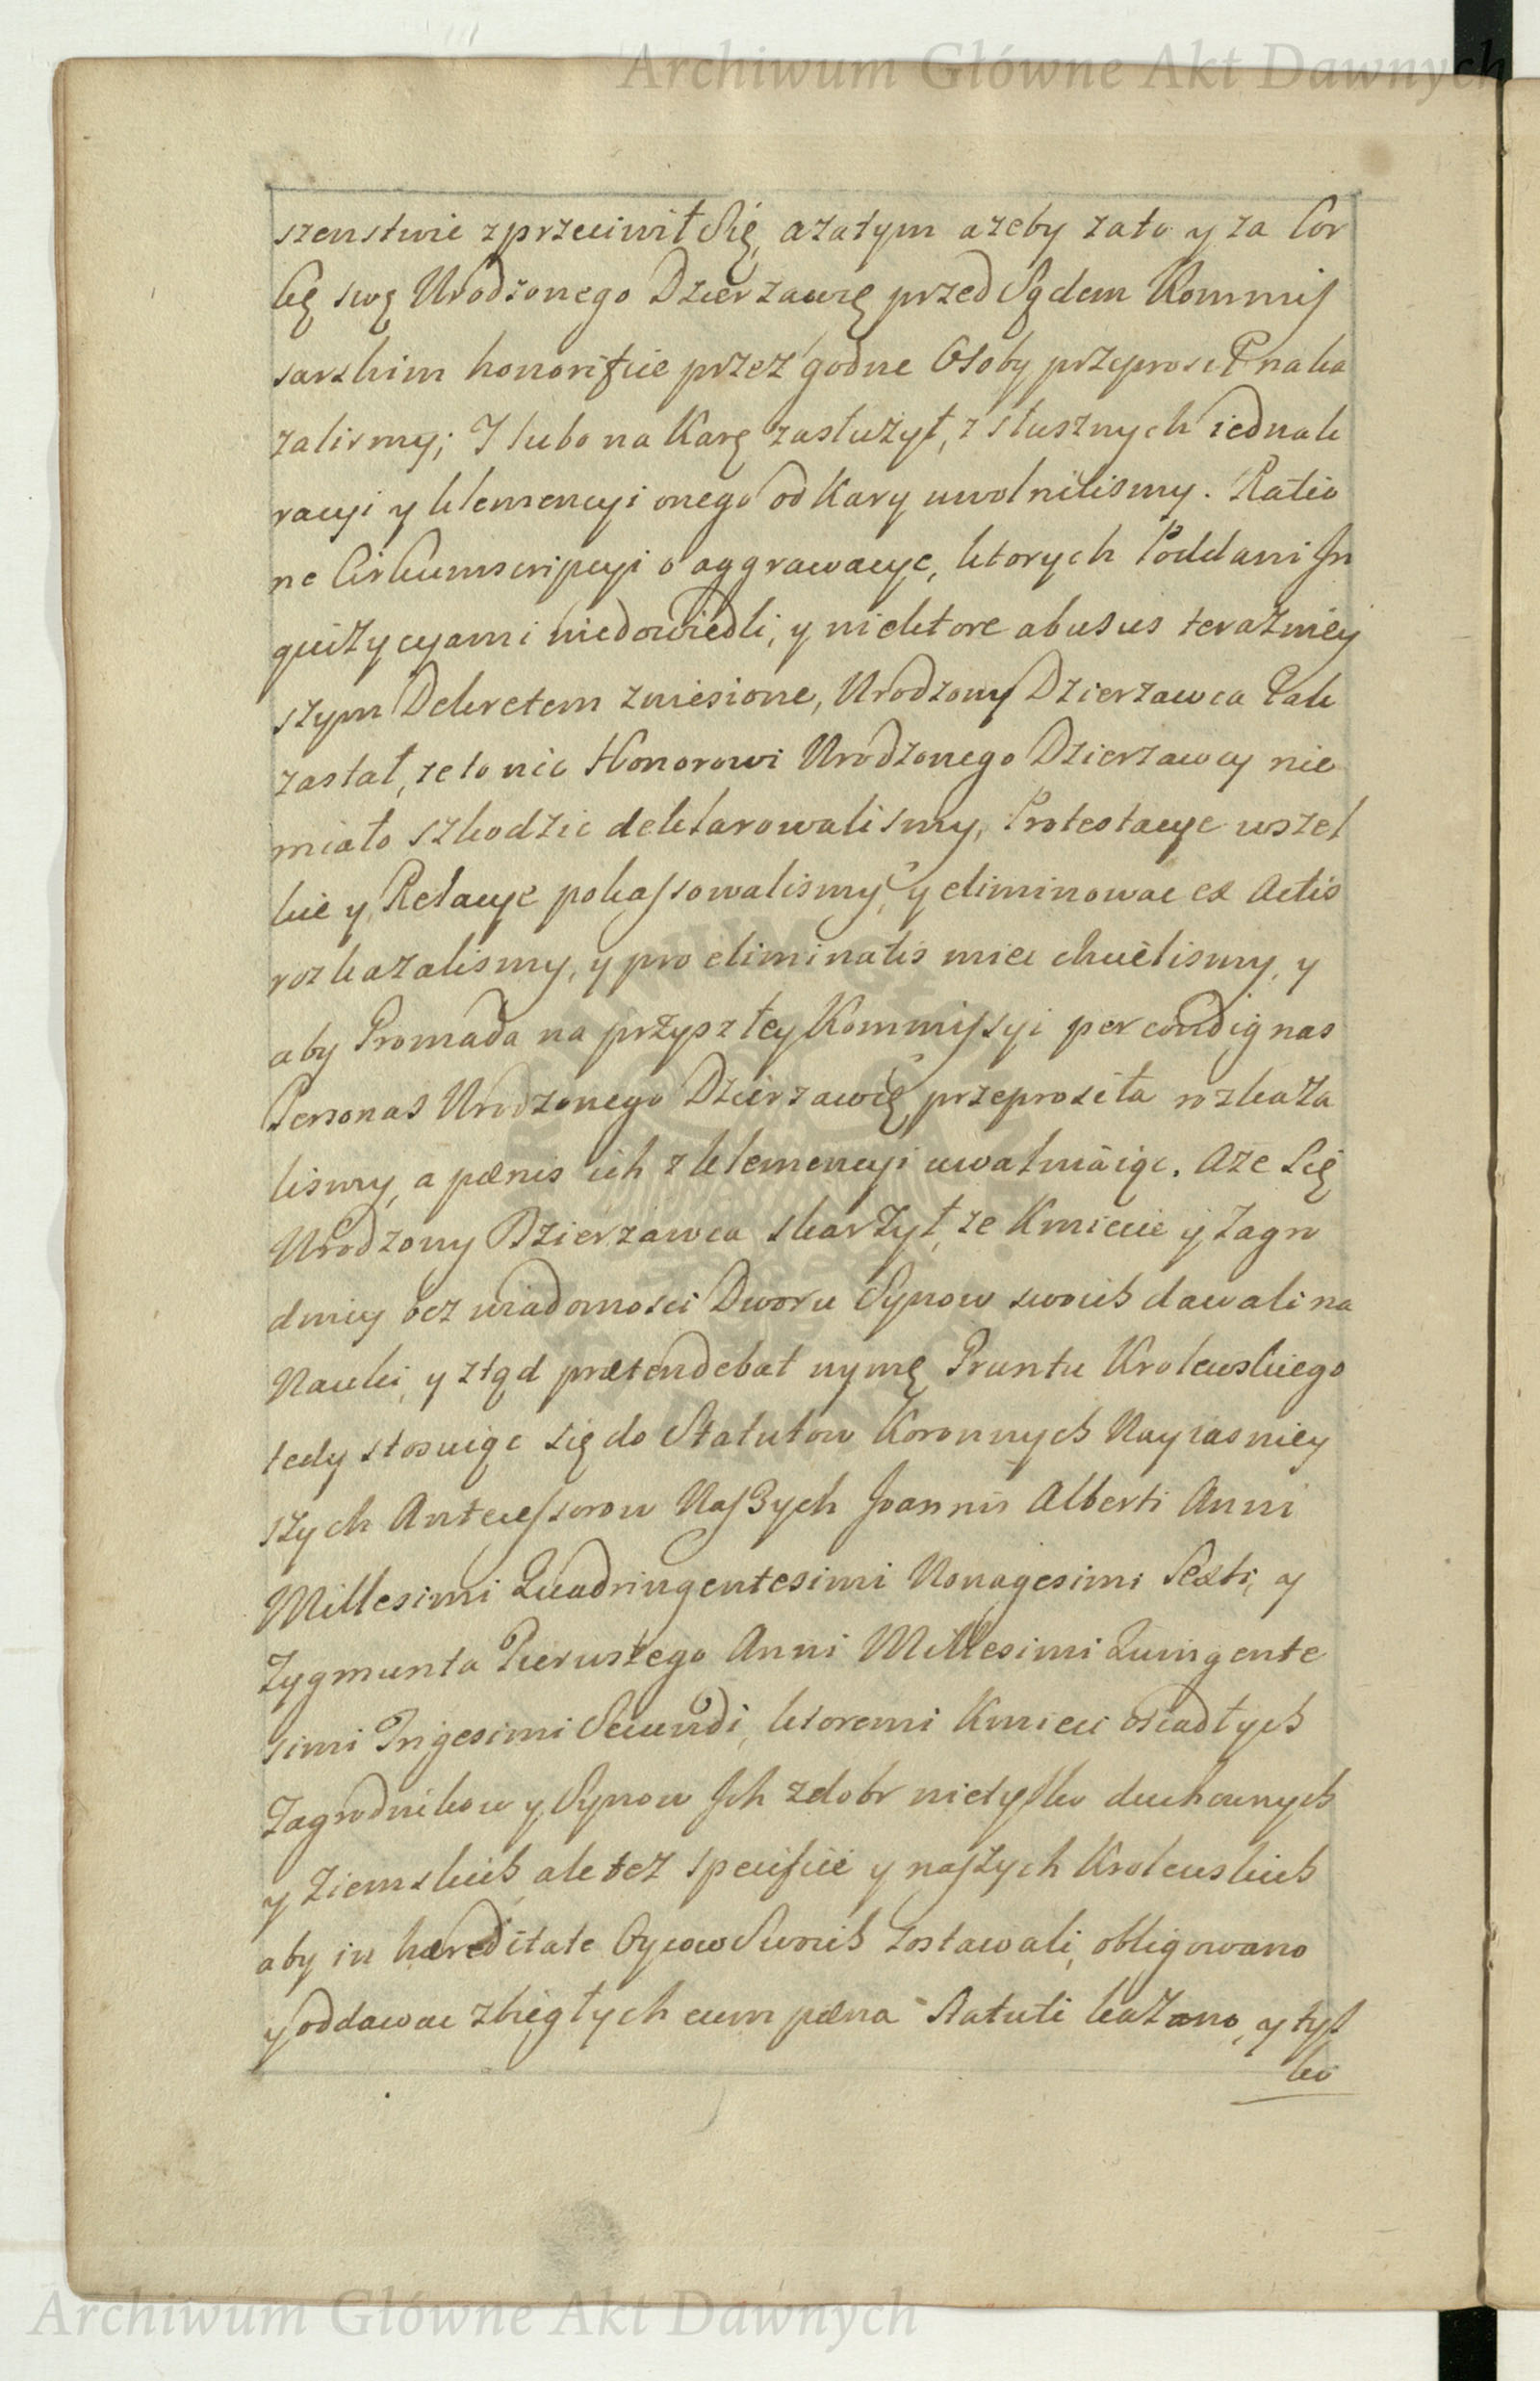 Archiwum Główne Akt Dawnych
szenstwie zprzeciwił Się, azatym azeby zato y za Cor
kę swą Urodzonego Dzierzawcę przed Sądem Kommis
sarskim honorifice przez godne Osoby przeprosił naka
zalismy; I lubo na Karę zasłużył, z słusznych iednak
racyi y klemencyi onego od Kary uwolnilismy. Ratio
ne Cirkumscripcyi o aggrawacye, ktorych Poddani In
quizycyami niedowiedli, y niektore abusus terazniey
szym Dekretem zniesione, Urodzony Dzierzawca Jak
zastał, ze to nic Honorowi Urodzonego Dzierzawcy nie
miało szkodzic deklarowalismy, Protestacye wszel
kie y Relacye pokassowalismy, y eliminowac ex Actis
rozkazalismy, y pro eliminatis miec chcielismy, y
aby Gromada na przyszłey Kommissyi per condignas
Personas Urodzonego Dzierzawcę przeprosiła rozkaza
lismy, a pænis ich z klemencyi uwalniaiąc. Aze Się
Urodzony Dzierzawca skarżył, ze Kmiecie y Zagro
dnicy bez wiadomosci Dworu Synow swoich dawali na
Nauki, y ztąd prætendebat uymę Gruntu Krolewskiego
tedy stosuiąc się do Statutow Koronnych Nayiasniey
szych Antecessorow Naszych Joannis Alberti Anni
Millesimi Quadringentesimi Nonagesimi Sexti, y
Zygmunta Pierwszego Anni Millesimi Quingente
simi Trigesimi Secundi, ktoremi Kmieci osiadłych
Zagrodnikow y Synow Ich zdobr nietylko duchownych
y Ziemskich, ale tez specifice y naszych Krolewskich
aby in hæreditate Oycow Swoich zostawali, obligowano
y oddawac zbiegłych cum pæna Statuti kazano, y tyl
ko
Archiwum Główne Akt Dawnych